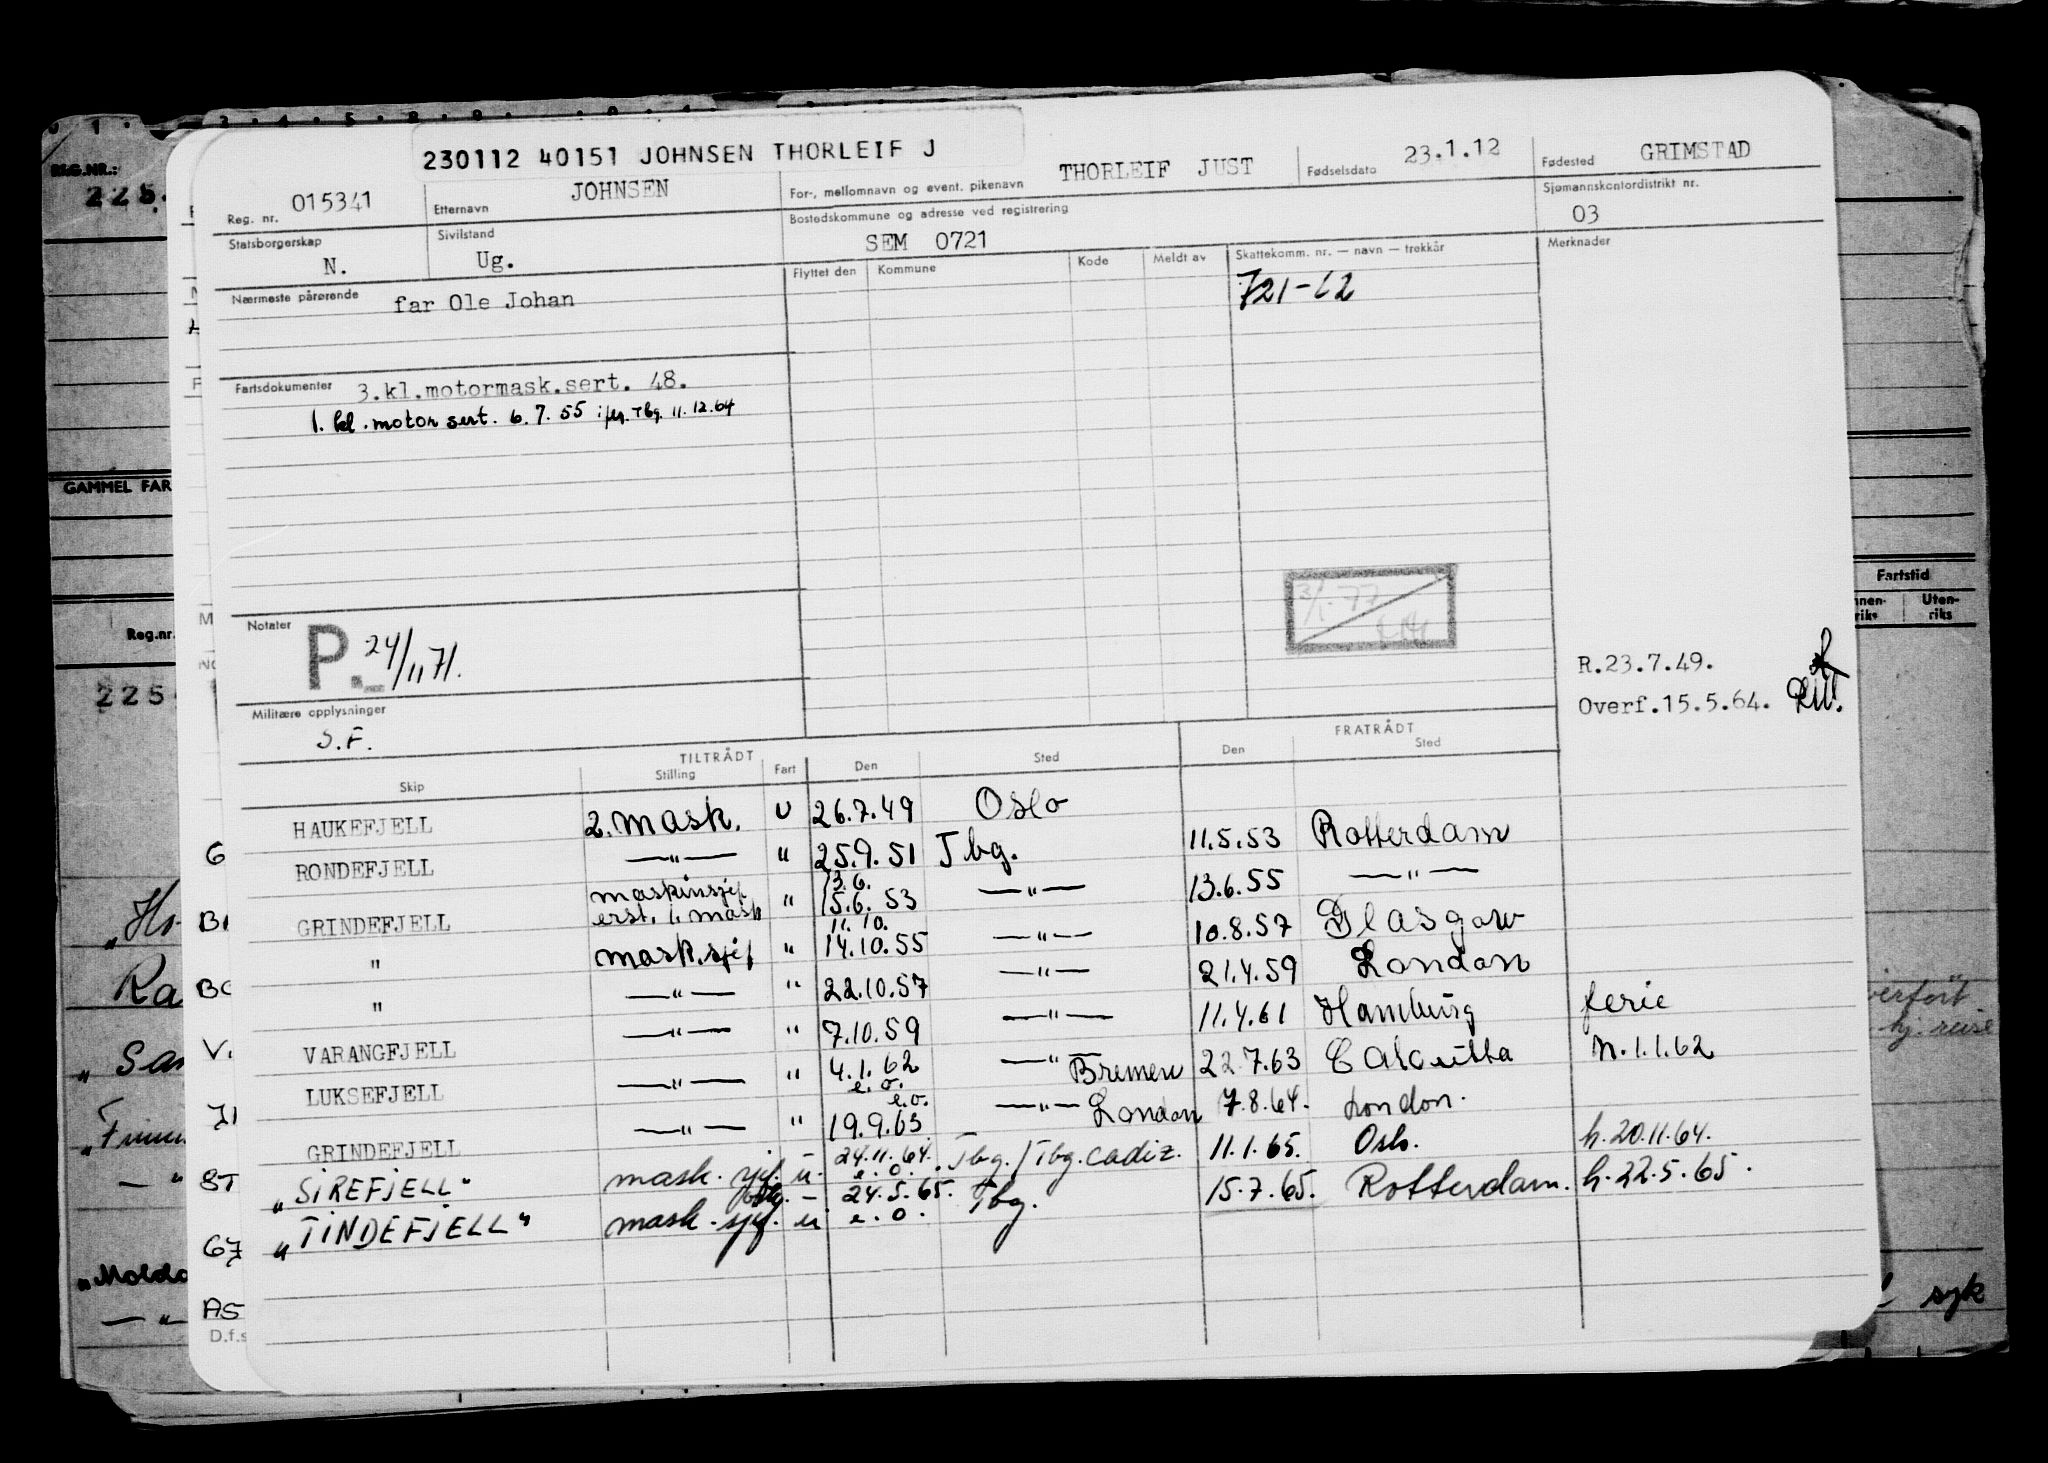 230112 40151 JOHNSEN THORLEIF J
Reg. nr. 015341 Etternavn JOHNSEN For-, mellomnavn og event. pikenavn THORLEIF JUST Fødselsdato 23.1.12 Fødested GRIMSTAD
Statsborgerskap N. Sivilstand Ug. Bostedskommune og adresse ved registrering SEM 0721 Sjømannskontordistrikt nr. 03
Nærmeste pårørende far Ole Johan
Flyttet den Kommune Kode Meldt av Skattekomm. nr. — navn — trekkår Merknader
721-62
Fartsdokumenter 3.kl.motormask.sert. 48.
1. kl. motor sert. 6.7.55 Tbg. 11.12.64
Notater P. 24/11 71.
R.23.7.49.
Overf.15.5.64.
Militære opplysninger
S.F.
TILTRÅDT FRATRÅDT
Skip Stilling Fart Den Sted Den Sted
HAUKEFJELL 2. mask. U 26.7.49 Oslo
RONDEFJELL —"— " 25.9.51 Tbg. 11.5.53 Rotterdam
GRINDEFJELL maskinsjef erst. 1. mask " 13.6. 15.6.53 —"— 13.6.55 —"—
" mask.sjef " 11.10. 14.10.55 —"— 10.8.57 Glasgow
" —"— " 22.10.57 —"— 21.4.59 London
VARANGFJELL —"— " 7.10.59 —"— 11.4.61 Hamburg ferie
LUKSEFJELL —"— " 4.1.62 e.o. —" Bremen 22.7.63 Calcutta n.1.1.62
GRINDEFJELL —"— " e.o. 19.9.63 —"— London 7.8.64. London.
"SIREFJELL" mask. sjef. u. 24.11.64. e.o. Tbg./Tbg. Cadiz. 11.1.65. Oslo. h.20.11.64.
"TINDEFJELL" mask. sjef. u 24.5.65. e.o. Tbg. 15.7.65. Rotterdam. h.22.5.65.
REG.NR.:
225
GAMMEL FAR
Reg.nr.
225
Fartstid
Uten-
riks
Ra
" San
"Moldo
—"
G
BC
V.
ST
67
AS
D.f.s
hj. reise
syk